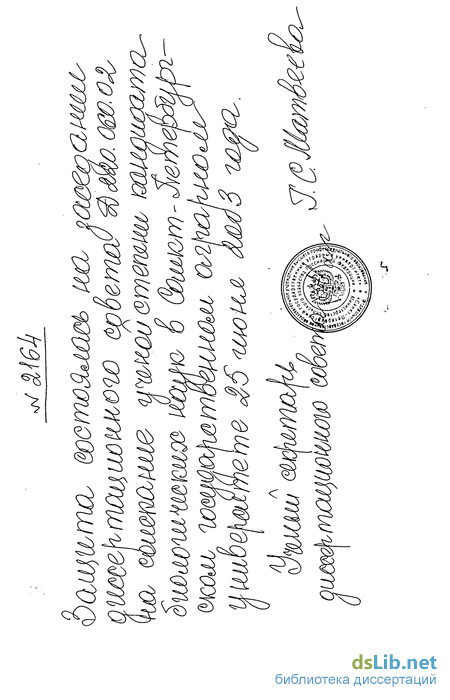 № 2164
Защита состоялась на заседании
диссертационного совета Д 220.060.02
на соискание ученой степени кандидата
биологических наук в Санкт-Петербург-
ском государственном аграрном
университете 25 июня 2003 года.
Ученый секретарь
диссертационного совета Г.С. Матвеева
dsLib.net
библиотека диссертаций